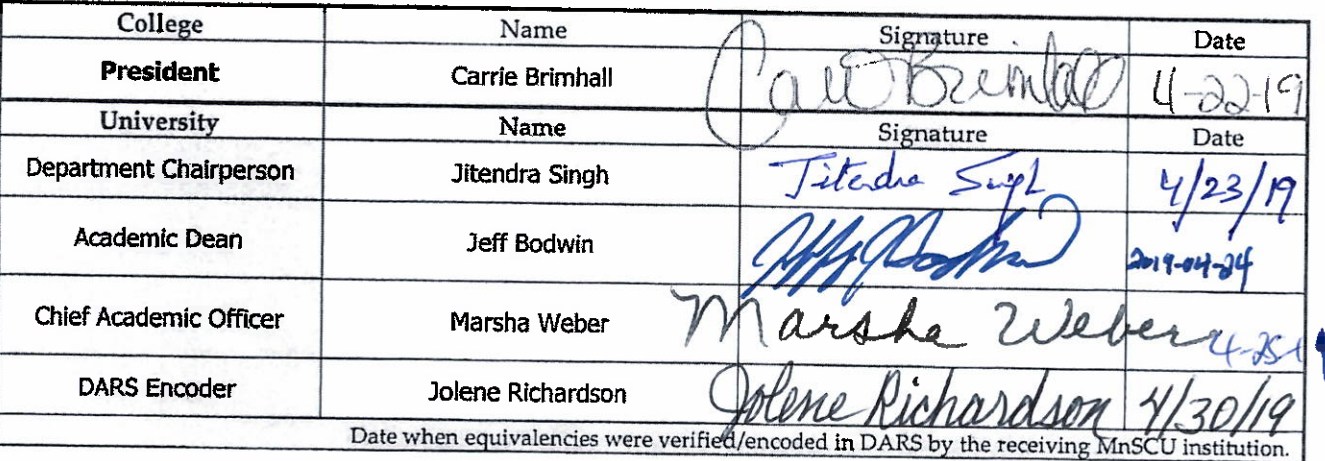 College Name Signature Date
President Carrie Brimhall Carrie Brimhall 4-22-19
University Name Signature Date
Department Chairperson Jitendra Singh Jitendra Singh 4/23/19
Academic Dean Jeff Bodwin Jeff Bodwin 2019-04-24
Chief Academic Officer Marsha Weber Marsha Weber 4-25-1
DARS Encoder Jolene Richardson Jolene Richardson 4/30/19
Date when equivalencies were verified/encoded in DARS by the receiving MnSCU institution.